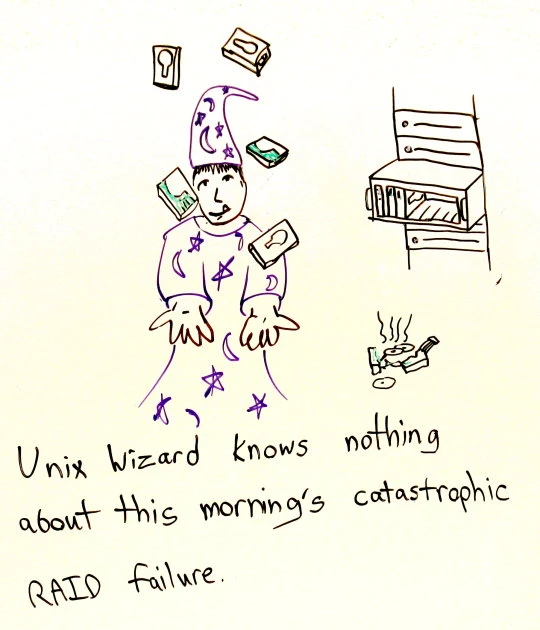 Unix Wizard knows nothing
about this morning's catastrophic
RAID failure.